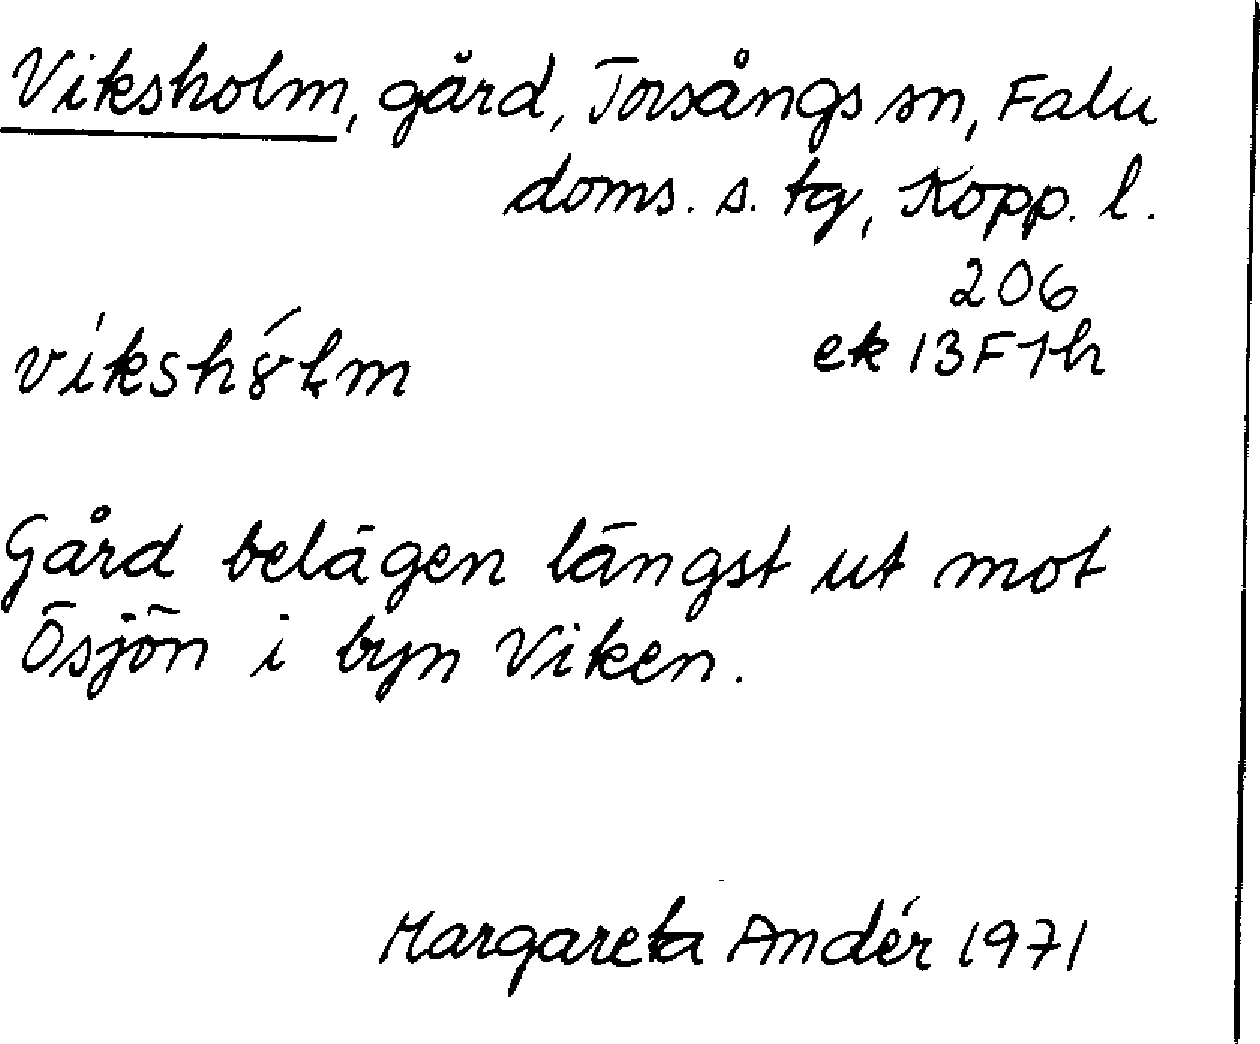 Viksholm, gård, Torsångs sn, Falu
doms. s. tg, Kopp. l.
206
víkshɤ́lm ek 13F7h
Gård belägen längst ut mot
Ösjön i byn Viken.
Margareta Andér 1971